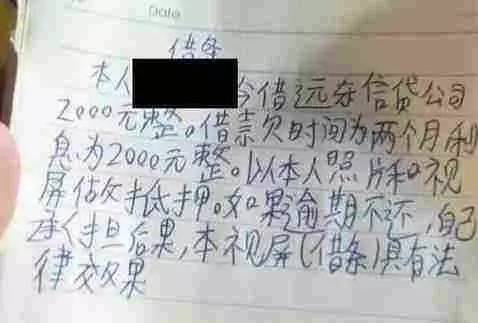 Date
借条
本人 今借远东信贷公司
2000元整。借款欠时间为两个月利
息为2000元整。以本人照片和视
屏估做抵押。如果逾期不还,自己
承担后果,本视屏(借条)具有法
律效果